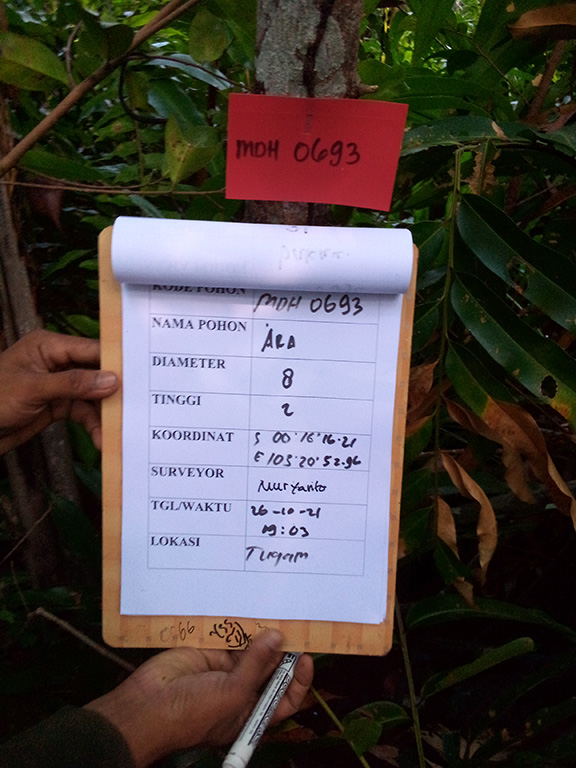 MDH 0693
KODE POHON MDH 0693
NAMA POHON Ara
DIAMETER 8
TINGGI 2
KOORDINAT S 00°16'16.21
E 103°20'52.96
SURVEYOR Nuryanto
TGL/WAKTU 26-10-21
19:03
LOKASI Tugam